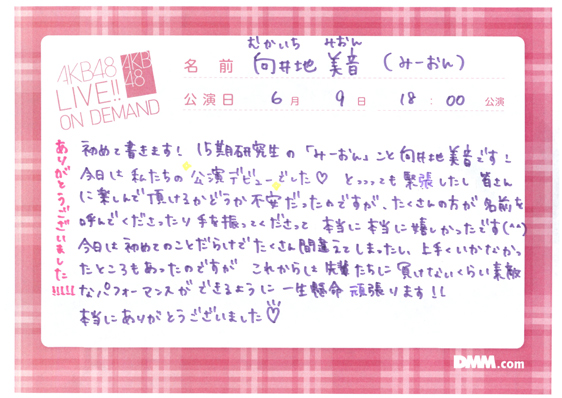 AKB48
LIVE!!
ON DEMAND
AKB
48
むかいち みおん
名前 向井地 美音 (みーおん)
公演日 6月 9日 18:00 公演
ありがとうございました!!!!!
初めて書きます! 15期研究生の「みーおん」こと向井地美音です!
今日は私たちの公演デビューでした♡ とっっっても緊張したし 皆さん
に楽しんで頂けるかどうか不安だったのですが、たくさんの方が名前を
呼んでくださったり手を振ってくださって 本当に本当に嬉しかったです(^^)
今日は初めてのことだらけでたくさん間違えてしまったし、上手くいかなかっ
たところもあったのですが これからは先輩たちに負けないくらい素敵
なパフォーマンスができるように一生懸命 頑張ります!!
本当にありがとうございました♡
DMM.com